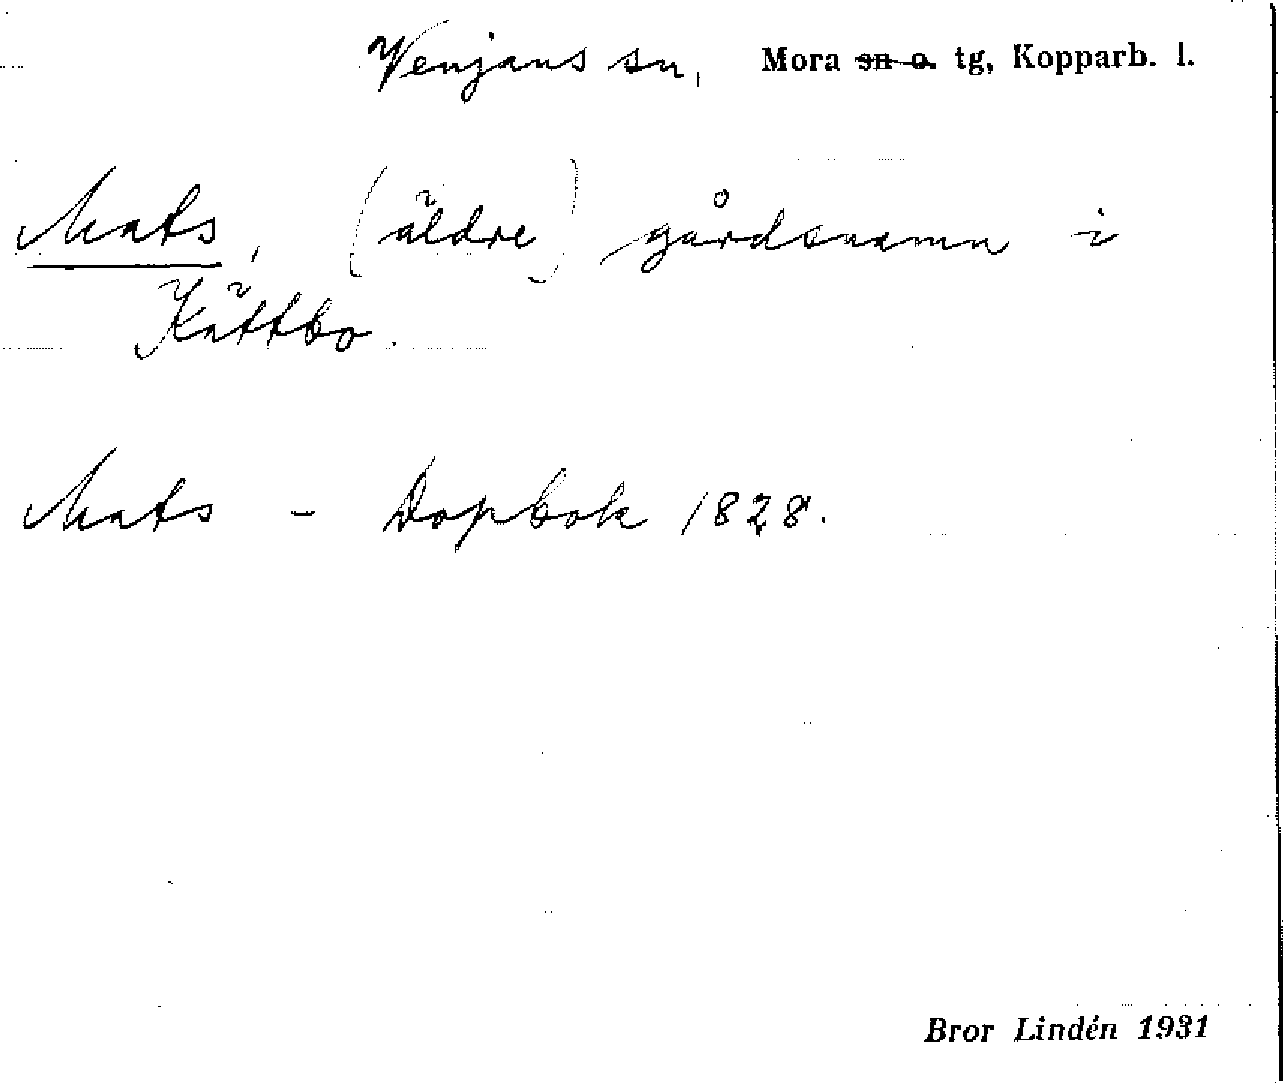 Venjans sn, Mora sn o. tg, Kopparb. l.
Mats, (äldre) gårdsnamn i
Kättbo.
Mats - Dopbok 1828.
Bror Lindén 1931